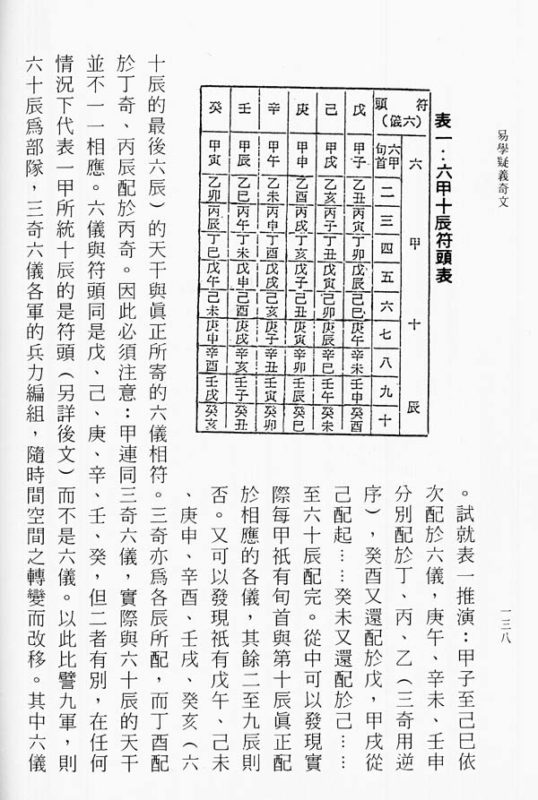 易學疑義奇文
一三八
表一：六甲十辰符頭表
六甲十辰
符頭（六儀） 六甲旬首 二 三 四 五 六 七 八 九 十
戊 甲子 乙丑 丙寅 丁卯 戊辰 己巳 庚午 辛未 壬申 癸酉
己 甲戌 乙亥 丙子 丁丑 戊寅 己卯 庚辰 辛巳 壬午 癸未
庚 甲申 乙酉 丙戌 丁亥 戊子 己丑 庚寅 辛卯 壬辰 癸巳
辛 甲午 乙未 丙申 丁酉 戊戌 己亥 庚子 辛丑 壬寅 癸卯
壬 甲辰 乙巳 丙午 丁未 戊申 己酉 庚戌 辛亥 壬子 癸丑
癸 甲寅 乙卯 丙辰 丁巳 戊午 己未 庚申 辛酉 壬戌 癸亥
。試就表一推演：甲子至己巳依
次配於六儀，庚午、辛未、壬申
分別配於丁、丙、乙（三奇用逆
序），癸酉又還配於戊，甲戌從
己配起……癸未又還配於己……
至六十辰配完。從中可以發現實
際每甲祇有旬首與第十辰眞正配
於相應的各儀，其餘二至九辰則
否。又可以發現祇有戊午、己未
、庚申、辛酉、壬戌、癸亥（六
十辰的最後六辰）的天干與眞正所寄的六儀相符。三奇亦爲各辰所配，而丁酉配
於丁奇、丙辰配於丙奇。因此必須注意：甲連同三奇六儀，實際與六十辰的天干
並不一一相應。六儀與符頭同是戊、己、庚、辛、壬、癸，但二者有別，在任何
情況下代表一甲所統十辰的是符頭（另詳後文）而不是六儀。以此比譬九軍，則
六十辰爲部隊，三奇六儀各軍的兵力編組，隨時間空間之轉變而改移。其中六儀